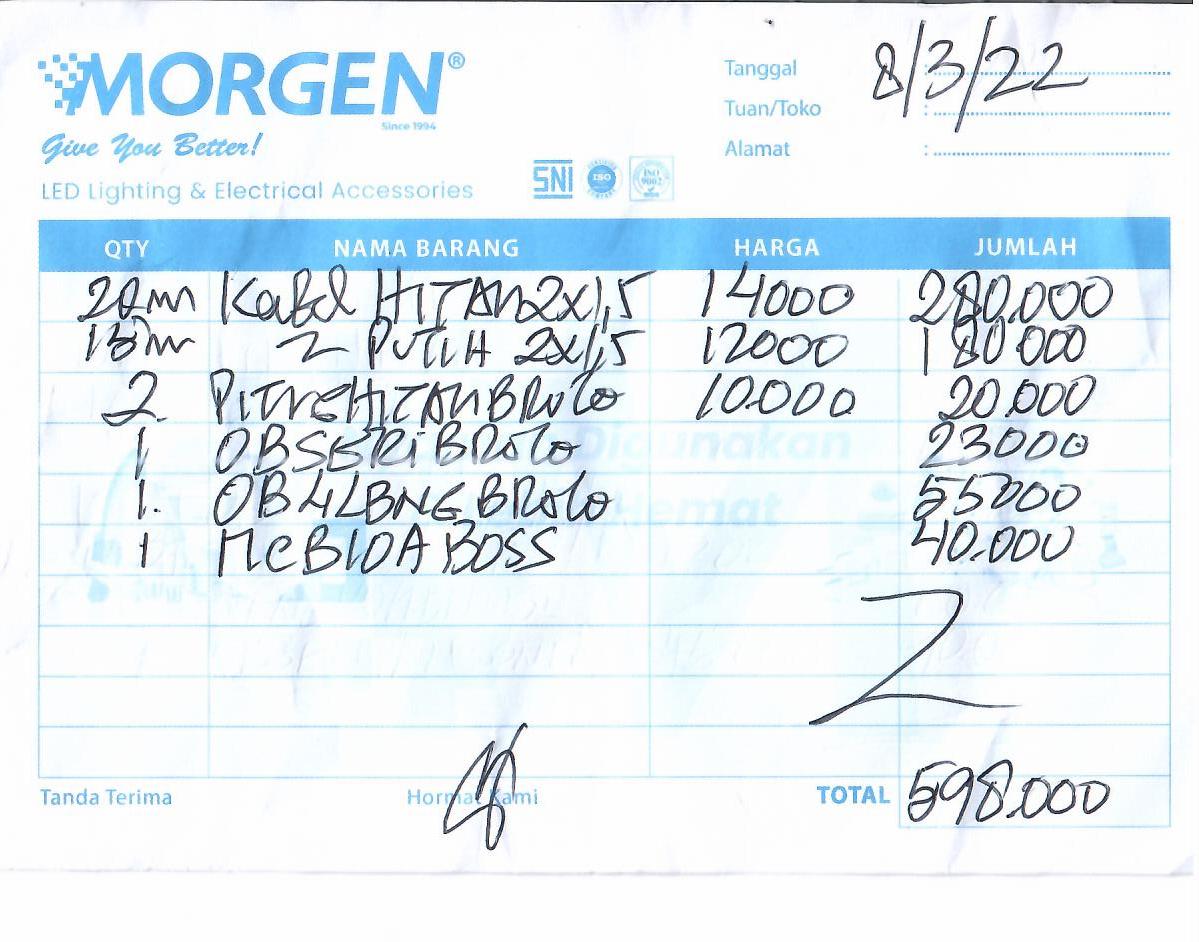 MORGEN®
Since 1994
Give You Better!
LED Lighting & Electrical Accessories
SNI ISO ISO 9002
Tanggal : 8/3/22
Tuan/Toko :
Alamat :
QTY NAMA BARANG HARGA JUMLAH
20m Kabel HITAM 2x1,5 14000 280.000
15m PUTIH 2x1,5 12000 180.000
2 HITAM BROCO 10.000 20.000
1 OB SERI BROCO 23000
1. OB 4 LBNG BROCO 55000
1 MCB 10A BOSS 40.000
Digunakan
Hemat
Tanda Terima Hormat Kami TOTAL 598.000